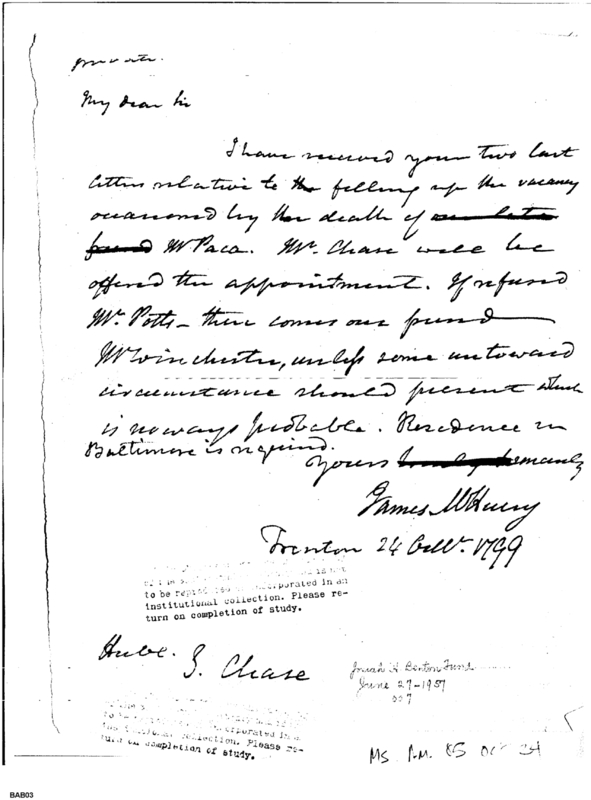 private.
My dear Sir
I have received your two last
letters relative to the filling up the vacancy
occasioned by the death of our late
friend Mr Paca. Mr. Chase will be
offered the appointment. If refused
Mr. Potts - then comes our friend
Mr Winchester, unless some untoward
circumstance should present which
is no ways probable. Residence in
Baltimore is required.
Yours
James McHenry
Trenton 24 Octbr. 1799
is not
to be incorporated in an
institutional collection. Please re-
turn on completion of study.
Honbl.
S. Chase
Josiah H. Benton Fund
June 27-1957
incorporated in a
collection. Please re-
turn on completion of study.
MS P.M. 85 Oct 24
BAB03